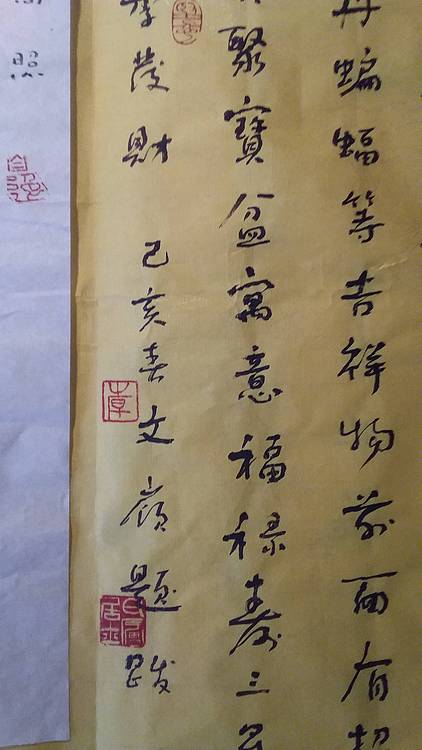 丹蝙蝠等吉祥物前面有
聚寶盆寓意福禄壽三星
發財
己亥春文嶺題跋
照